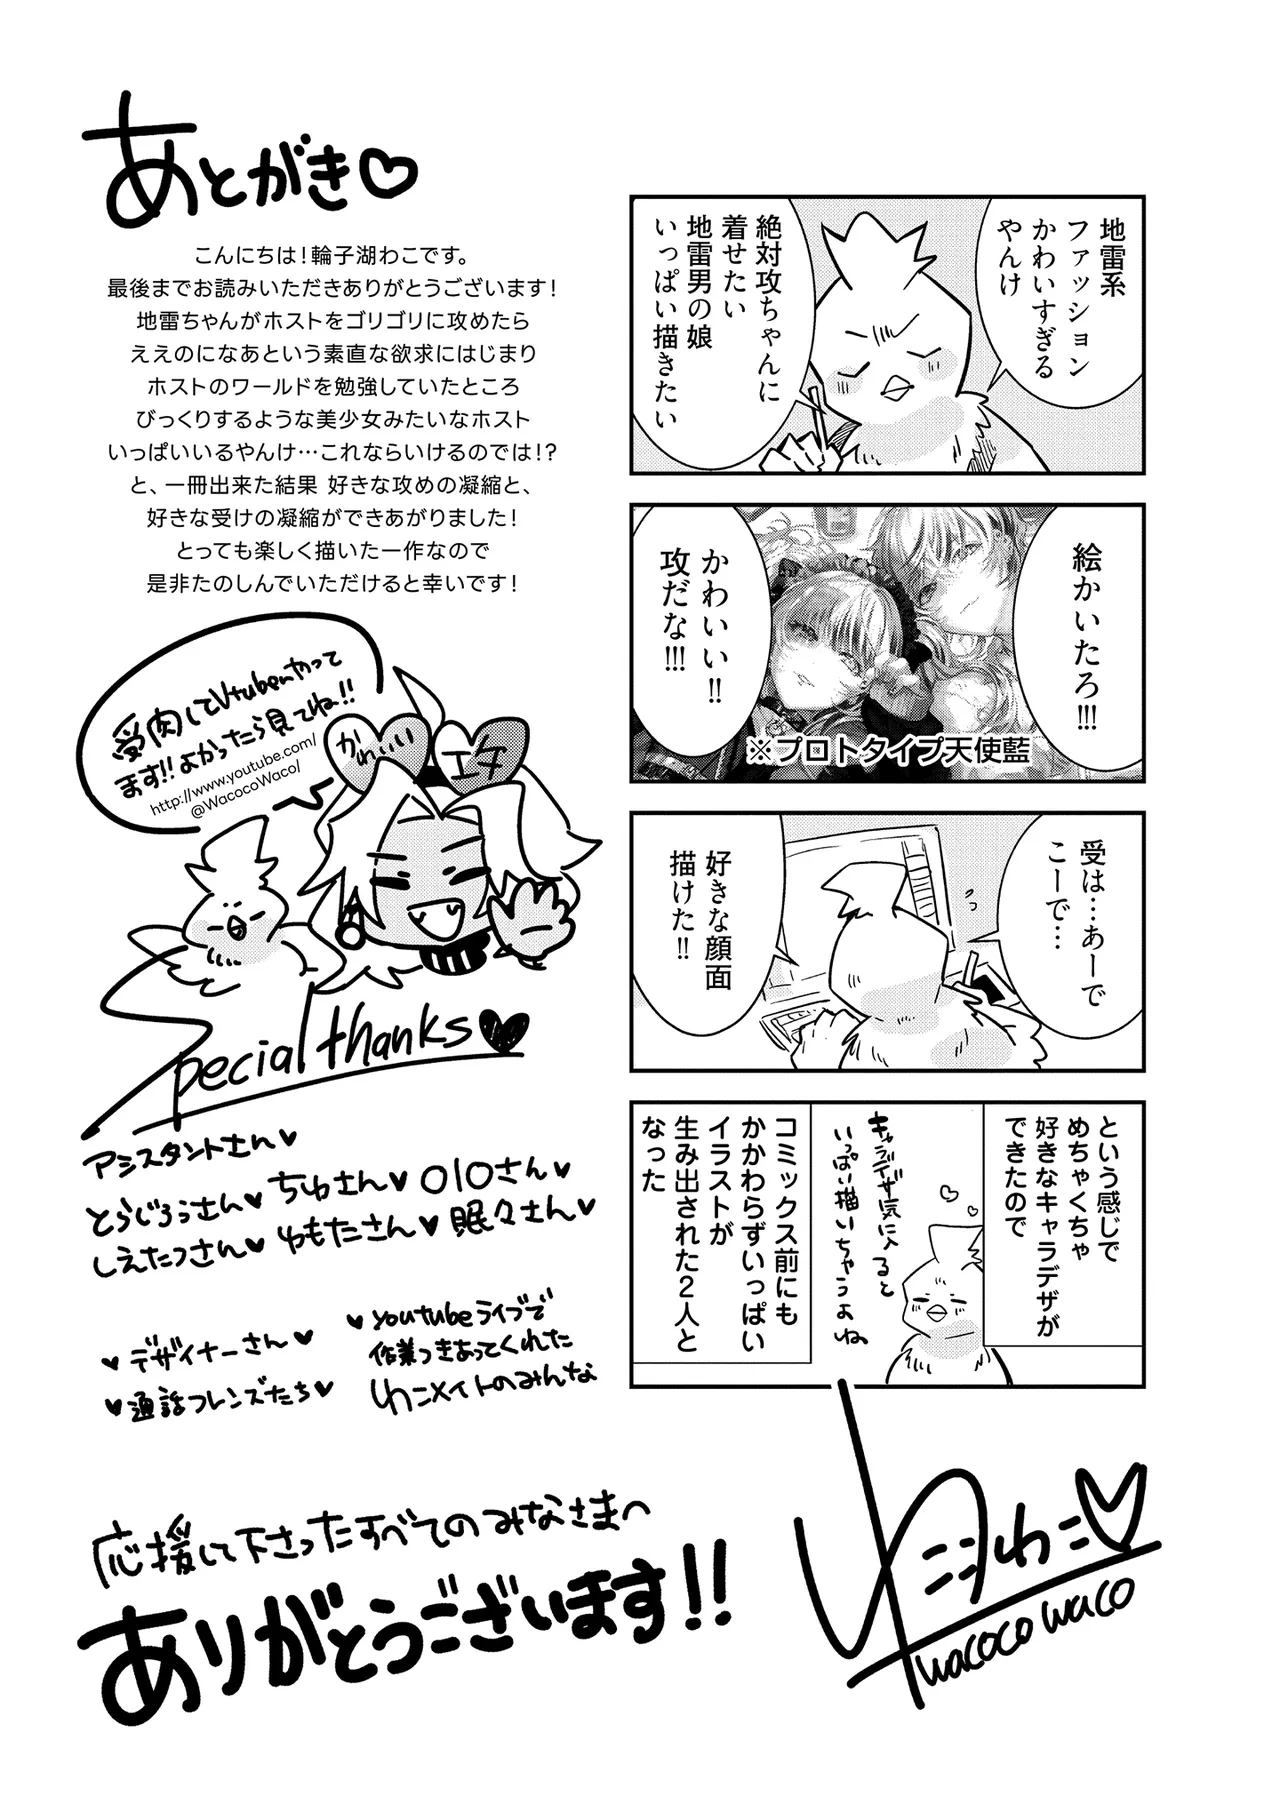 あとがき♡
こんにちは！輪子湖わこです。
最後までお読みいただきありがとうございます！
地雷ちゃんがホストをゴリゴリに攻めたら
ええのになあという素直な欲求にはじまり
ホストのワールドを勉強していたところ
びっくりするような美少女みたいなホスト
いっぱいいるやんけ…これならいけるのでは！？
と、一冊出来た結果 好きな攻めの凝縮と、
好きな受けの凝縮ができあがりました！
とっても楽しく描いた一作なので
是非たのしんでいただけると幸いです！
受肉してVtuberやって
ます!!よかったら見てね!!
http://www.youtube.com/
@WacocoWaco/
かわいい
エチ
Special thanks♥
アシスタントさん♥
とらじろうさん♥ ちゅさん♥ OIOさん♥
しえたつさん♥ ゆもたさん♥ 眠々さん♥
♥デザイナーさん♥
♥通話フレンズたち♥
♥youtubeライブで
作業つきあってくれた
わこメイトのみんな
応援して下さったすべてのみなさまへ
ありがとうございます!!
地雷系
ファッション
かわいすぎる
やんけ
絶対攻ちゃんに
着せたい
地雷男の娘
いっぱい描きたい
絵かいたろ!!!
かわいい!!
攻だな!!!
※プロトタイプ天使藍
受は…あーで
こーで…
好きな顔面
描けた!!
という感じで
めちゃくちゃ
好きなキャラデザが
できたので
キャラデザ気に入ると
いっぱい描いちゃうよね
コミックス前にも
かかわらずいっぱい
イラストが
生み出された2人と
なった
wacoco waco